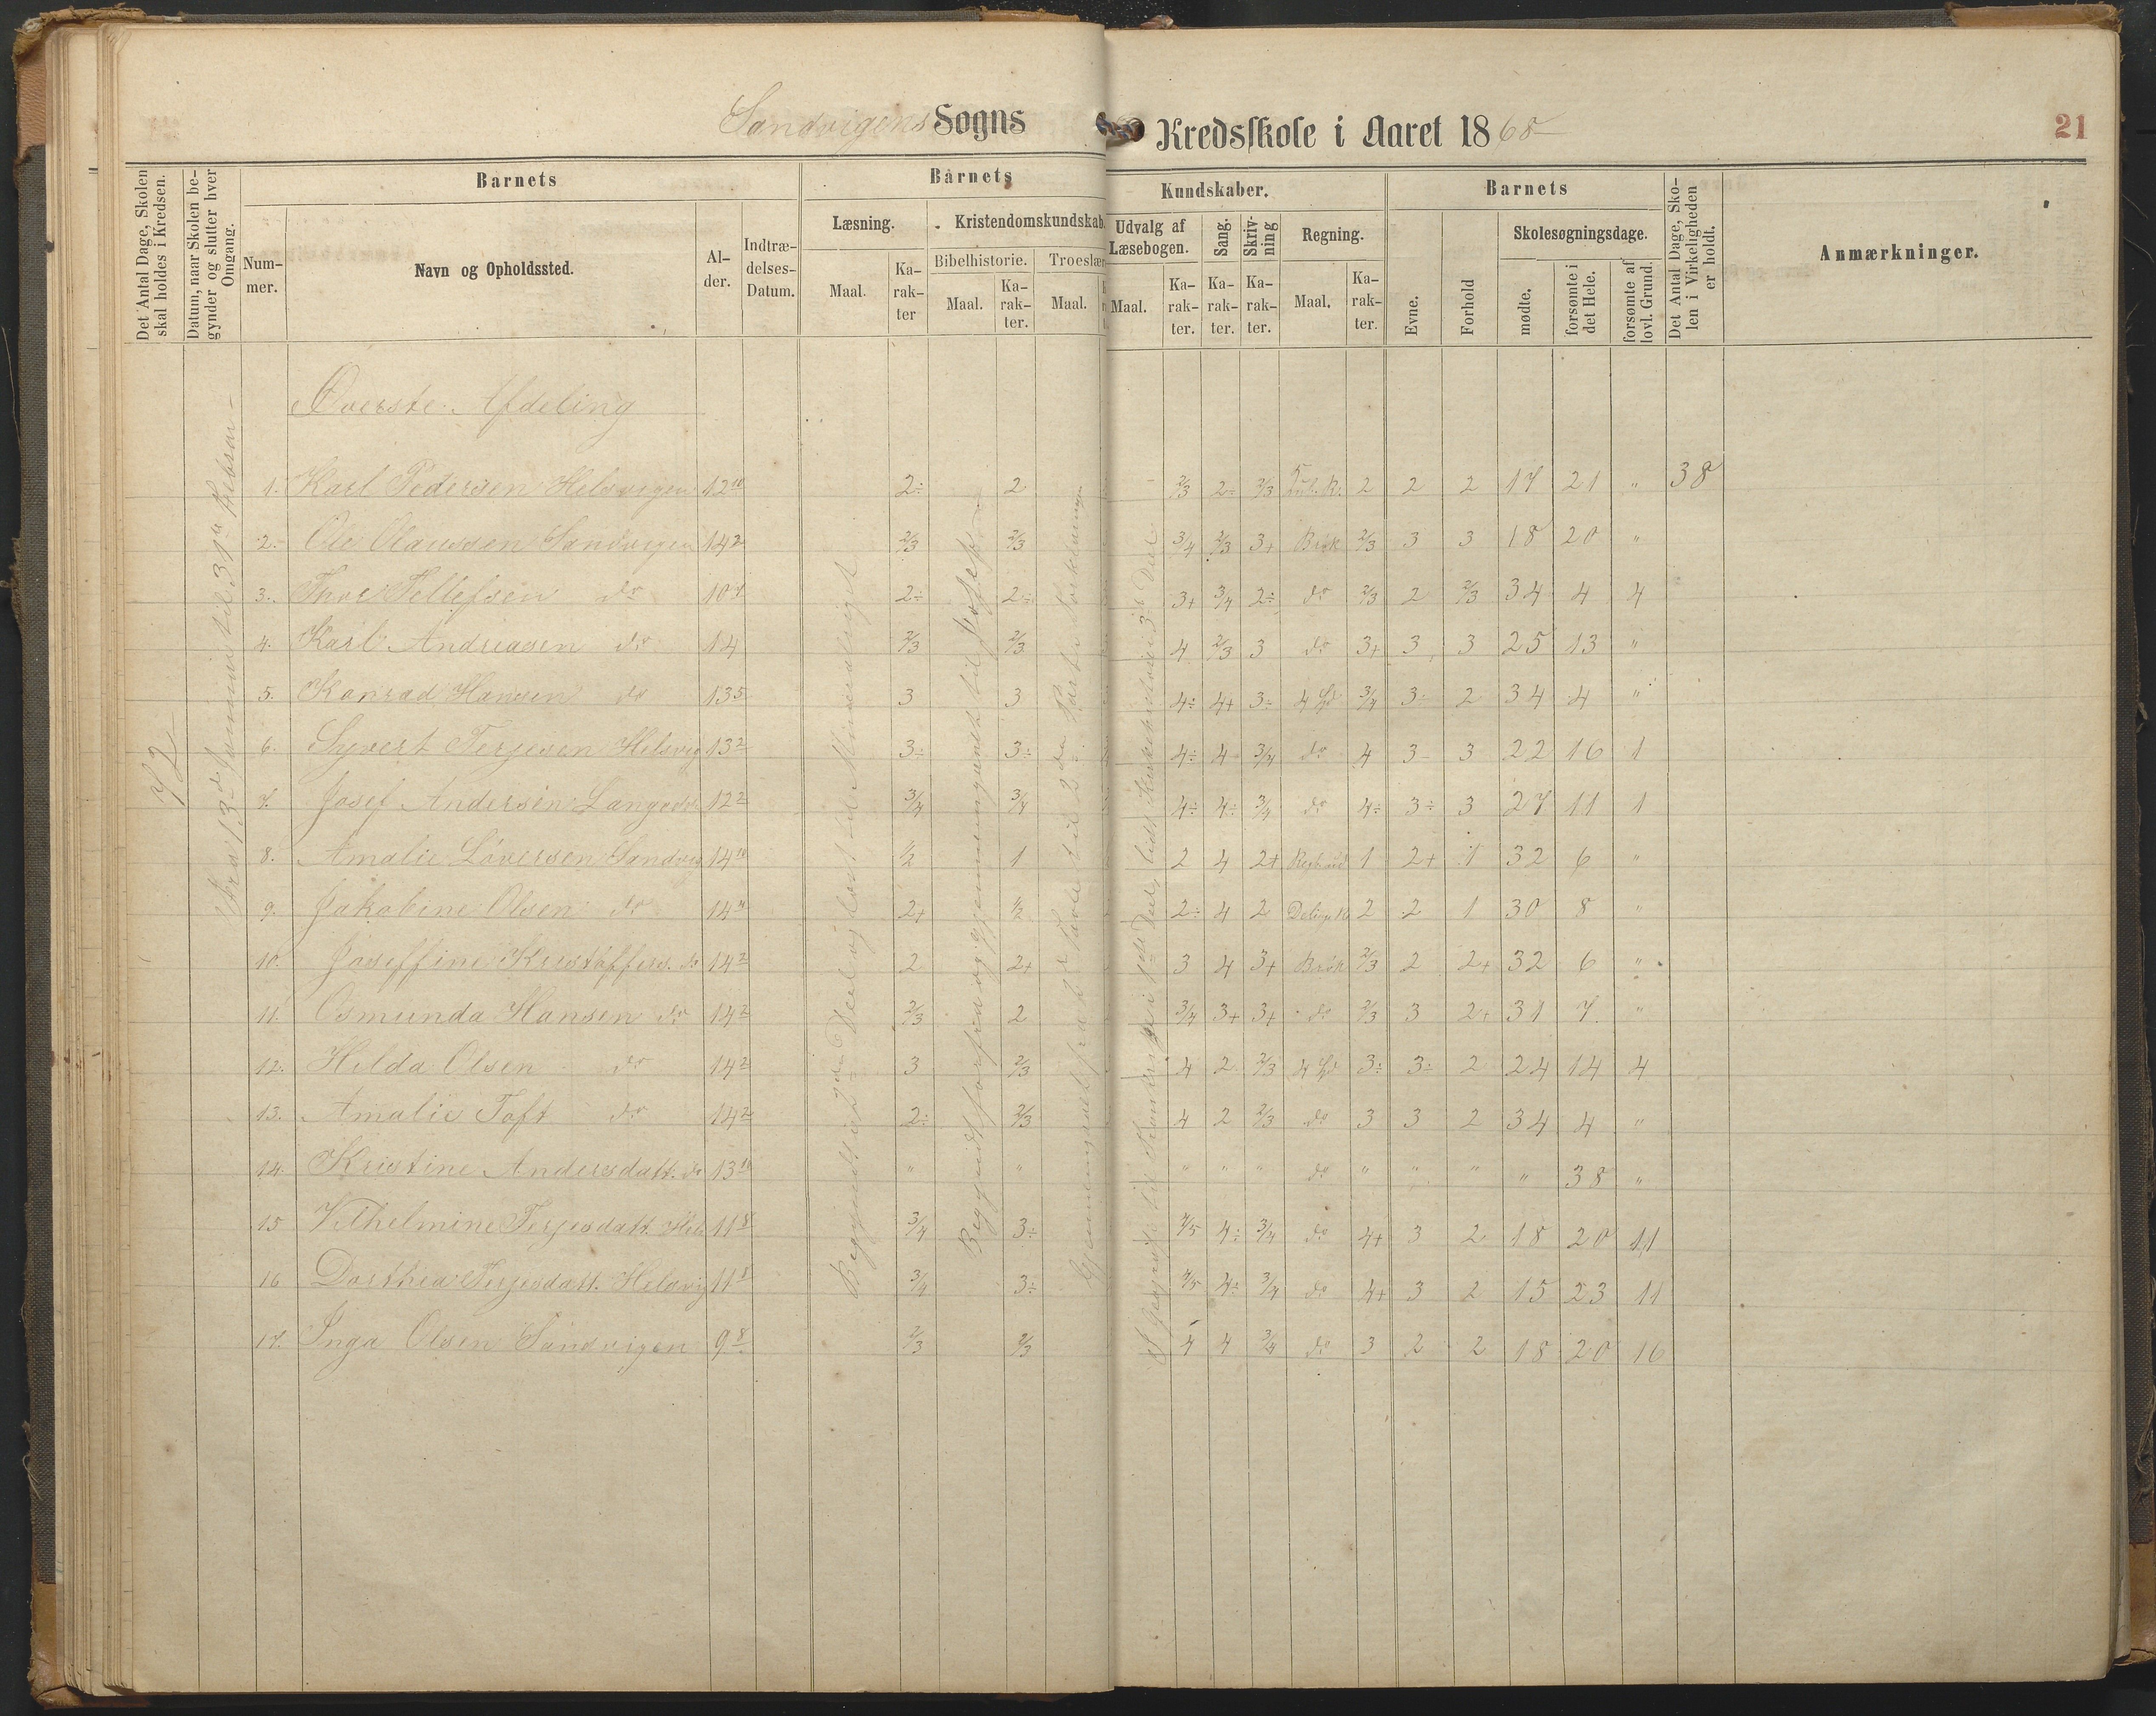 Sandvigens Sogns Kredsskole i Aaret 1868
21
Det Antal Dage, Skolen skal holdes i Kredsen.
Datum, naar Skolen begynder og slutter hver Omgang.
Barnets
Nummer.
Navn og Opholdssted.
Alder.
Indtrædelses-Datum.
Barnets
Læsning.
Maal.
Karakter
Kristendomskundskab.
Bibelhistorie.
Maal.
Karakter.
Troeslær
Maal.
Kundskaber.
Udvalg af Læsebogen.
Maal.
Karakter.
Sang.
Karakter.
Skrivning
Karakter.
Regning.
Maal.
Karakter.
Barnets
Evne.
Forhold
Skolesøgningsdage.
mødte.
forsømte i det Hele.
forsømte af lovl. Grund.
Det Antal Dage, Skolen i Virkeligheden er holdt.
Anmærkninger.
72
Øverste Afdeling
1. Karl Pedersen Helsvigen 12 10 2÷ 2 2/3 2÷ 2/3 2 2 2 17 21 " 38
2. Ole Olaussen Sandvigen 14 2 2/3 2/3 3/4 2/3 3+ Brøk 2/3 3 3 18 20 "
3. Thor Tellefsen do 10 7 2÷ 2÷ 3+ 3/4 2÷ do 2/3 2 2/3 34 4 4
4. Karl Andreasen do 14 2/3 2/3 4 2/3 3 do 3+ 3 3 25 13 "
5. Konrad Hansen do 13 5 3 3 4÷ 4+ 3÷ 3/4 3÷ 2 34 4 "
6. Syvert Terjesen Helsvig 13 2 3÷ 3÷ 4÷ 4 3/4 do 4 3 3 22 16 1
7. Josef Andersen 12 2 3/4 3/4 4÷ 4÷ 3/4 do 4÷ 3÷ 3 27 11 1
8. Amalie Løversen Sandvig 14 10 1/2 1 2 4 2+ 1 2+ 1 32 6 "
9. Jakobine Olsen do 14 2+ 1/2 2÷ 4 2 2 2 1 30 8 "
10. Joseffine Kristoffers. do 14 2 2 2+ 3 4 3+ Brøk 2/3 2 2+ 32 6 "
11. Osmunda Hansen do 14 2 2/3 2 3/4 3+ 3+ do 2/3 3 2+ 31 7 "
12. Hilda Olsen do 14 2 3 2/3 4 2 2/3 3÷ 3÷ 2 24 14 4
13. Amalie Toft do 14 2 2÷ 2/3 4 2 2/3 do 3 3 2 34 4 "
14. Kristine Andersdatt. do 13 10 " " " " " do " " " " 38 "
15 Vilhelmine Terjesdatt. Hels 11 8 3/4 3÷ 4/5 4÷ 3/4 do 4+ 3 2 18 20 11
16 Dorthea Terjesdatt. Helsvig 11 8 3/4 3÷ 4/5 4÷ 3/4 do 4+ 3 2 15 23 11
17. Inga Olsen Sandvigen 9 8 2/3 2/3 4 4 3/4 do 3 2 2 18 20 16